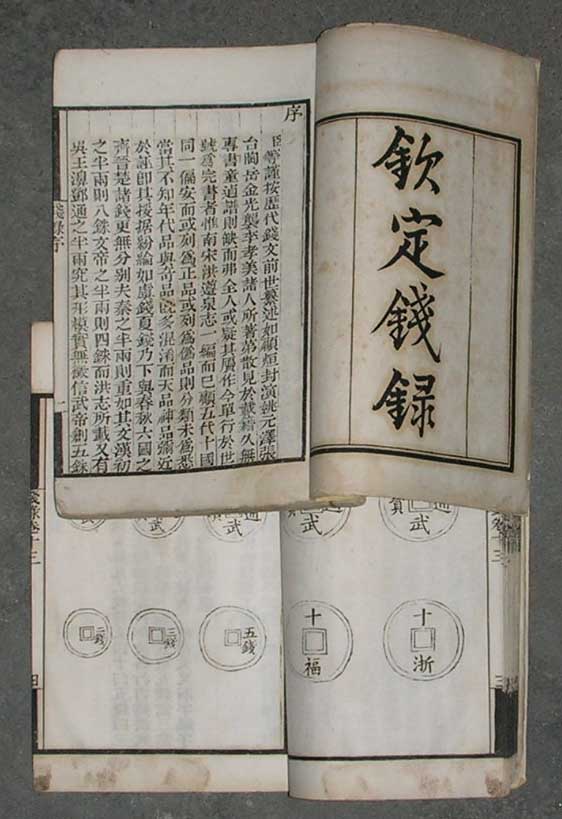 欽定錢録
序
臣等謹按歷代錢文前世纂述如顧烜封演姚元澤張
台陶岳金光襲李孝美諸人所著第散見於載籍久無
專書董逌譜則缺而弗全人或疑其贗作今單行於世
號爲完書者惟南宋洪遵泉志一編而已顧五代十國
同一偏安而或列爲正品或列爲僞品則分類未爲悉
當其不知年代品與奇品旣多混淆而天品神品彌近
於誕卽其援据紛綸如虞錢夏錢乃下與春秋六國之
齊晉楚諸錢更無分别夫秦之半兩則重如其文漢初
之半兩則八銖文帝之半兩則四銖而洪志所載又有
吳王濞鄧通之半兩究其形模實無徵信武帝創五銖
錢錄序
一
通武
武
通武
武
武
十浙
十福
五錢
三錢
二錢
錢錄卷十三
三
四